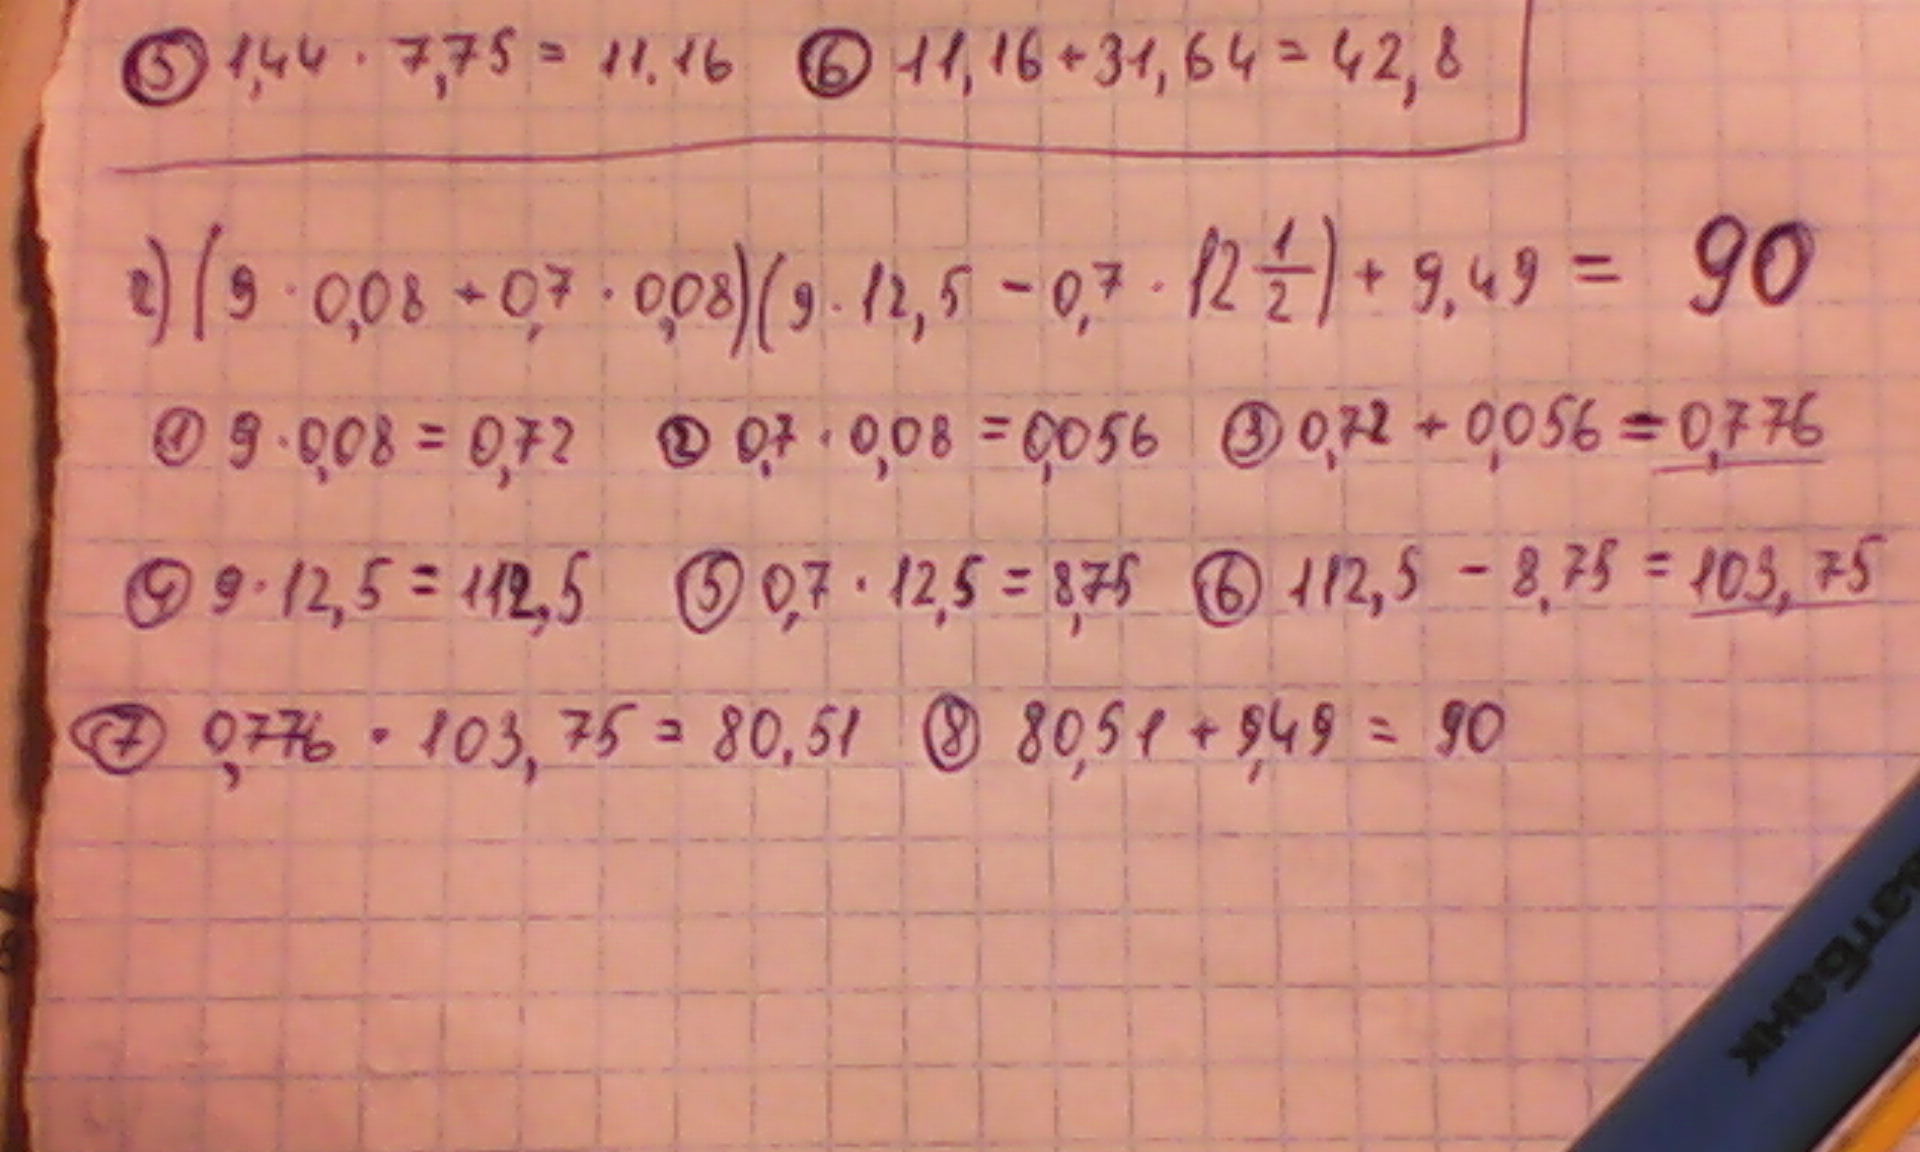 ⑤ 1,44 · 7,75 = 11.16 ⑥ 11,16+31,64 = 42,8
г) (9 · 0,08 + 0,7 · 0,08)(9 · 12,5 - 0,7 · 12 1/2) + 9,49 = 90
① 9 · 0,08 = 0,72 ② 0,7 · 0,08 = 0,056 ③ 0,72 + 0,056 = 0,776
④ 9 · 12,5 = 112,5 ⑤ 0,7 · 12,5 = 8,75 ⑥ 112,5 - 8,75 = 103,75
⑦ 0,776 · 103,75 = 80,51 ⑧ 80,51 + 9,49 = 90